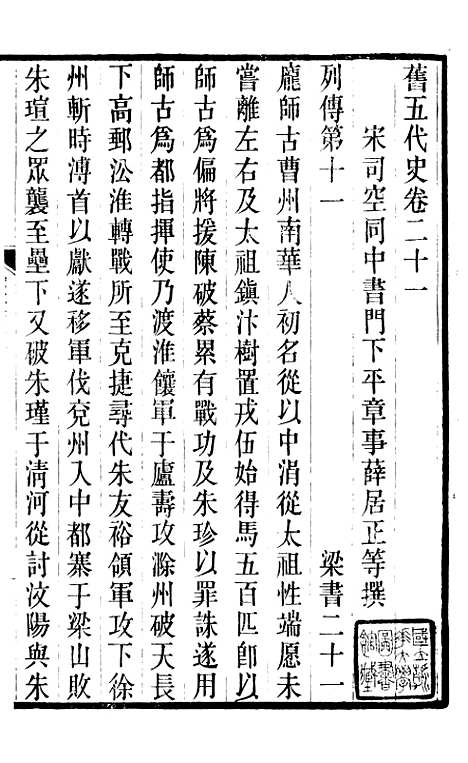 舊五代史卷二十一
宋司空同中書門下平章事薛居正等撰
列傳第十一　梁書二十一
龐師古曹州南華人初名從以中涓從太祖性端愿未
嘗離左右及太祖鎮汴樹置戎伍始得馬五百匹卽以
師古爲偏將援陳破蔡累有戰功及朱珍以罪誅遂用
師古爲都指揮使乃渡淮饟軍于廬壽攻滁州破天長
下高郵沿淮轉戰所至克捷尋代朱友裕領軍攻下徐
州斬時溥首以獻遂移軍伐兗州入中都寨于梁山敗
朱瑄之眾襲至壘下又破朱瑾于清河從討汶陽與朱